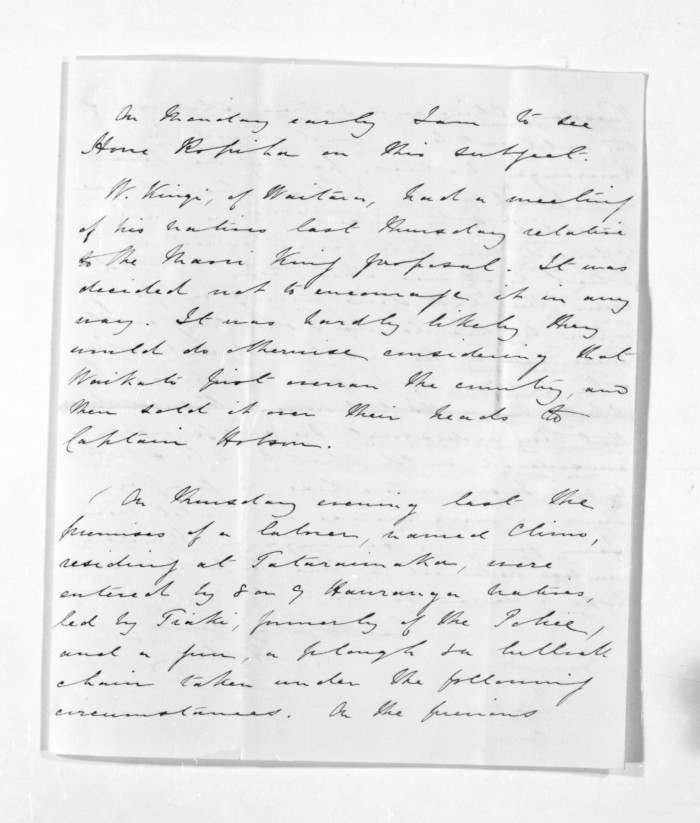 On Monday early I am to see
Hone Ropiha on this subject.
W. Kingi, of Waitara, had a meeting
of his natives last Thursday relative
to the Maori King proposal. It was
decided not to encourage it in any
way. It was hardly likely they
would do otherwise considering that
Waikato first overran the country, and
then sold it over their heads to
Captain Hobson.
( On Thursday evening last the
premises of a laborer, named Climo,
residing at Tataraimaka, were
entered by 8 or 9 Hauranga natives,
led by Tiaki, formerly of the Police,
and a gun, a plough &a bullock
chain taken under the following
circumstances. On the previous